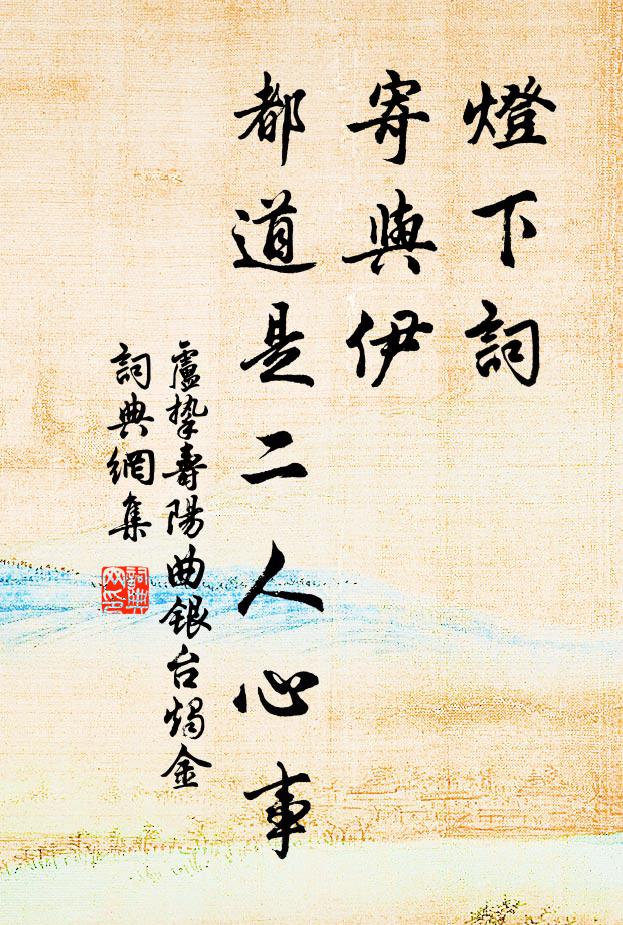 燈下詞
寄與伊
都道是二人心事
盧摯壽陽曲銀台燭金
詞典網集
詞典
网印